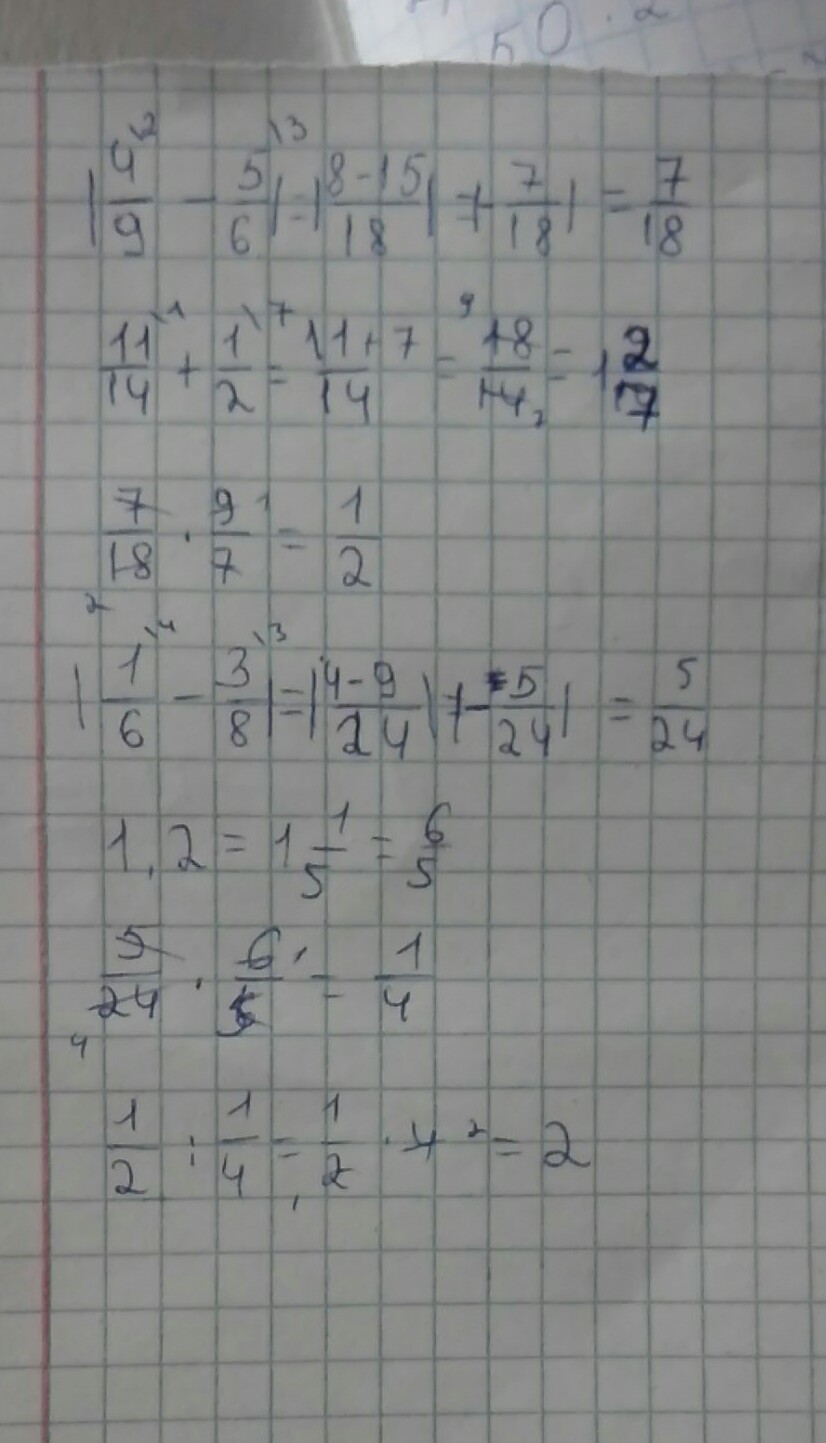 50 · 2
|4/9\2 - 5/6\3| = |8-15/18| = |-7/18| = 7/18
11/14\1 + 1/2\7 = 11+7/14 = 18/14 9 7 = 1 2/7
7/18 2 · 9/7 1 = 1/2
|1/6\4 - 3/8\3| = |4-9/24| = |-5/24| = 5/24
1,2 = 1 1/5 = 6/5
5/24 4 · 6/5 1 = 1/4
1/2 : 1/4 = 1/2 1 · 4 2 = 2